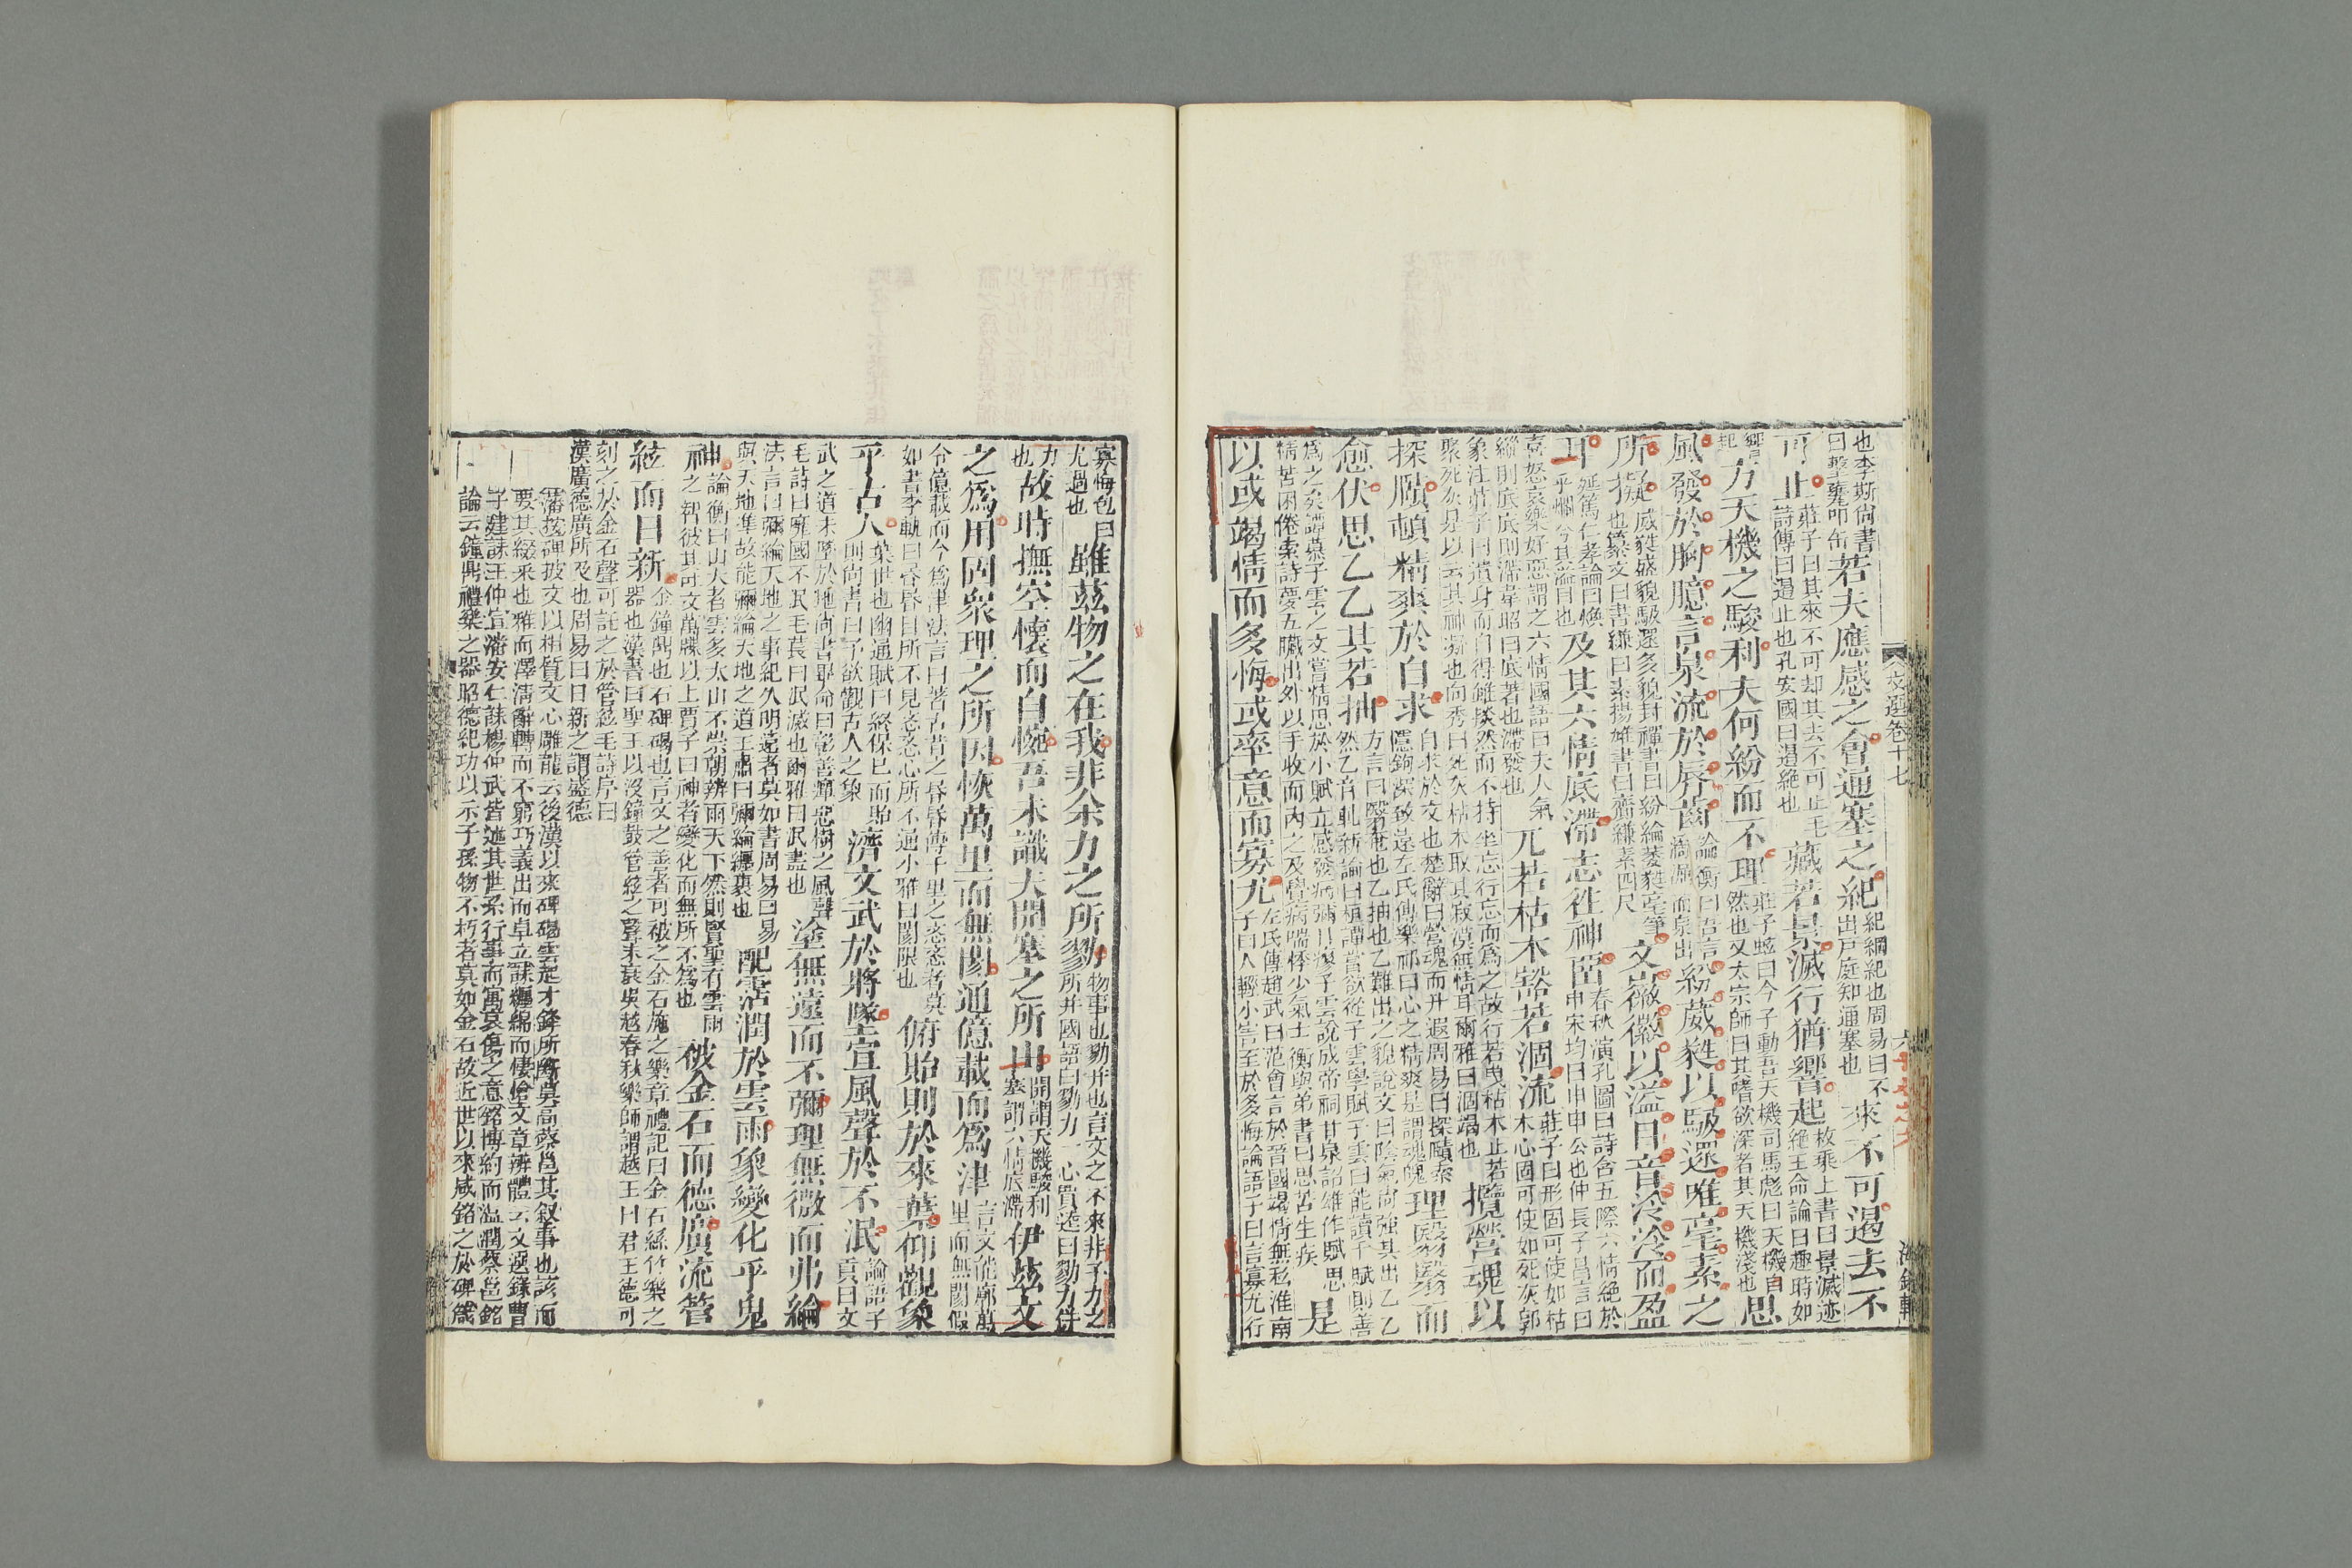 文選卷十七
海錄軒
也李斯尚書
曰擊甕叩缶
若夫應感之會通塞之紀
紀綱紀也周易曰不
出戶庭知通塞也
來不可遏去不
可止
莊子曰其來不可却其去不可止毛
詩傳曰遏止也孔安國曰遏絶也
藏若景滅行猶響起
枚乘上書曰景滅迹
絶王命論曰趣時如
響
起
方天機之駿利夫何紛而不理
莊子蚿曰今予動吾天機司馬彪曰天機自
然也又太宗師曰其嗜欲深者其天機淺也
思
風發於胸臆言泉流於唇齒
論衡曰吾言
潏淈而泉出
紛葳蕤以馺遝唯毫素之
所擬
葳蕤盛貌馺遝多貌封禪書曰紛綸葳蕤毫筆
也纂文曰書縑曰素揚雄書曰齎縑素四尺
文徽徽以溢目音泠泠而盈
耳
延篤仁孝論曰煥
乎爛兮其溢目也
及其六情底滯志往神留
春秋演孔圖曰詩含五際六情絶於
申宋均曰申申公也仲長子昌言曰
喜怒哀樂好惡謂之六情國語曰夫人氣
縱則底底則滯韋昭曰底著也滯發也
兀若枯木豁若涸流
莊子曰形固可使如枯
木心固可使如死灰郭
象注莊子曰遺身而自得雖掞然而不持坐忘行忘而爲之故行若曳枯木止若
聚死灰是以云其神凝也向秀曰死灰枯木取其寂漠無情耳爾雅曰涸竭也
攬營魂以
探賾頓精爽於自求
自求於文也楚辭曰營魂而升遐周易曰探賾索
隱鉤深致遠左氏傳樂祁曰心之精爽是謂魂魄
理翳翳而
愈伏思乙乙其若抽
方言曰翳奄也乙抽也乙難出之貌說文曰陰氣尚強其出乙乙
然乙音軋新論曰桓譚嘗欲從子雲學賦子雲曰能讀千賦則善
爲之矣譚慕子雲之文嘗精思於小賦立感發病彌日瘳子雲說成帝祠甘泉詔雄作賦思
精苦困倦索詩夢五臟出外以手收而內之及覺病喘悸少氣士衡與弟書曰思苦生疾
是
以或竭情而多悔或率意而寡尤
左氏傳趙武曰范會言於晉國竭情無私淮南
子曰人輕小害至於多悔論語子曰言寡尤行
寡悔包曰
尤過也
雖茲物之在我非余力之所勠
物事也勠并也言文之不來非予力之
所并國語曰勠力一心賈逵曰勠力并
力
也
故時撫空懷而自惋吾未識夫開塞之所由
開謂天機駿利
塞謂六情底滯
伊茲文
之爲用固衆理之所因恢萬里而無閡通億載而爲津
言文能廓萬
里而無閡假
令億載而今爲津法言曰著古昔之㖧㖧傳千里之忞忞者莫
如書李軌曰㖧㖧目所不見忞忞心所不通小雅曰閡限也
俯貽則於來葉仰觀象
乎古人
葉世也幽通賦曰終保己而貽
則尚書曰予欲觀古人之象
濟文武於將墜宣風聲於不泯
論語子
貢曰文
武之道未墜於地尚書畢命曰彰善癉惡樹之風聲
毛詩曰靡國不泯毛萇曰泯滅也爾雅曰泯盡也
塗無遠而不彌理無微而弗綸
法言曰彌綸天地之事紀久明遠者莫如書周易曰易
與天地準故能彌綸天地之道王肅曰彌綸纏裹也
配霑潤於雲雨象變化乎鬼
神
論衡曰山大者雲多太山不崇朝辨雨天下然則賢聖有雲雨
之智彼其吐文萬牒以上賈子曰神者變化而無所不爲也
被金石而德廣流管
絃而日新
金鐘鼎也石碑碣也言文之善者可被之金石施之樂章禮記曰金石絲竹樂之
器也漢書曰聖王以沒鐘鼓管絃之聲未衰吳越春秋樂師謂越王曰君王德可
刻之於金石聲可託之於管絃毛詩序曰
漢廣德廣所及也周易曰日新之謂盛德
藩按碑披文以相質文心雕龍云後漢以來碑碣雲起才鋒所斷莫高蔡邕其叙事也該而
要其綴采也雅而澤清辭轉而不窮巧義出而卓立誄纏綿而悽愴文章辨體云文選錄曹
子建誄王仲宣潘安仁誄楊仲武皆述其世系行事而寓哀傷之意銘博約而溫潤蔡邕銘
論云鐘鼎禮樂之器昭德紀功以示子孫物不朽者莫如金石故近世以來咸銘之於碑箴